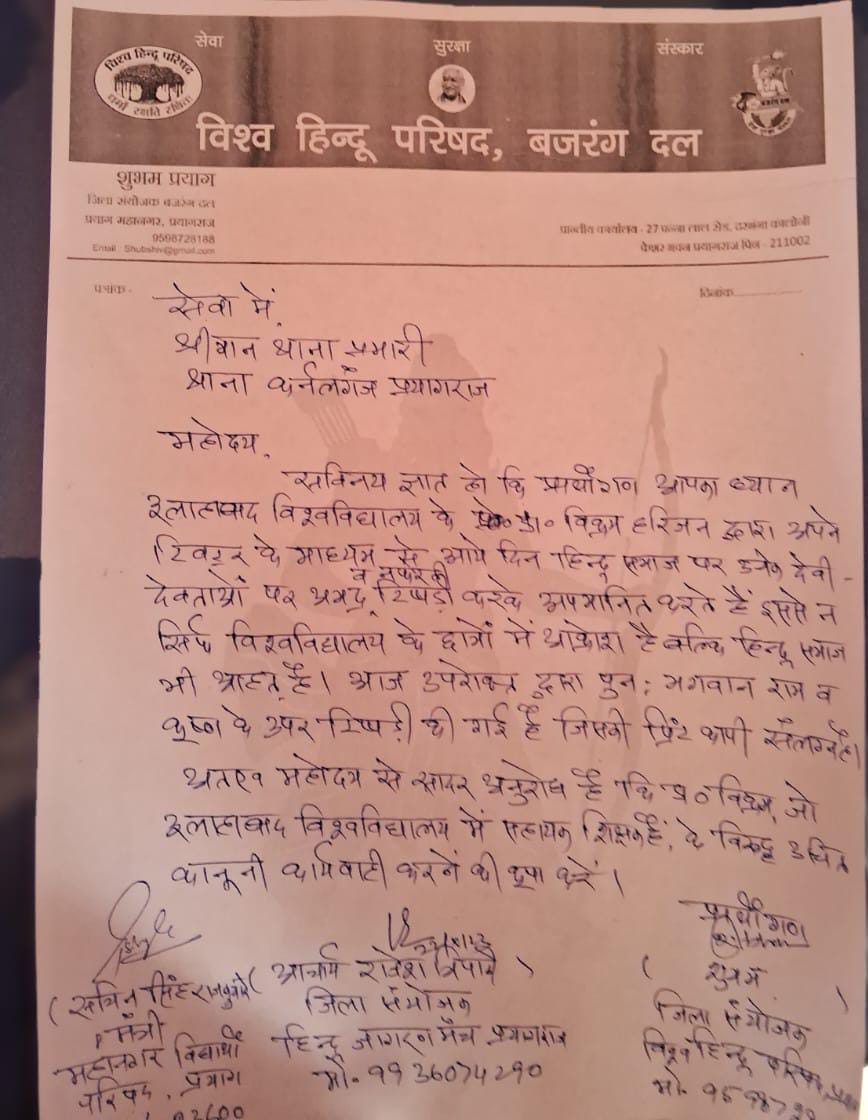 सेवा
सुरक्षा
संस्कार
विश्व हिन्दू परिषद
धर्मो रक्षति रक्षितः
बजरंग दल
विश्व हिन्दू परिषद, बजरंग दल
शुभम प्रयाग
जिला संयोजक बजरंग दल
प्रयाग महानगर, प्रयागराज
9598728188
Email : Shubshiv@gmail.com
प्रान्तीय कार्यालय - 27 पन्ना लाल रोड, दरभंगा कालोनी
केशर भवन प्रयागराज पिन - 211002
पत्रांक -
दिनांक
सेवा में,
श्रीमान थाना प्रभारी
थाना कर्नलगंज प्रयागराज
महोदय,
सविनय ज्ञात हो कि प्रार्थीगण आपका ध्यान
इलाहाबाद विश्वविद्यालय के डा० विक्रम हरिजन द्वारा अपने
ट्विटर के माध्यम से आये दिन हिन्दू समाज पर उनके देवी -
देवताओं पर अभद्र व टिप्पड़ी करके अपमानित करते हैं इससे न
सिर्फ विश्वविद्यालय के छात्रों में आक्रोश है बल्कि हिन्दू समाज
भी आहत है। आज उपरोक्त द्वारा पुनः भगवान राम व
कृष्ण के उपर टिप्पड़ी की गई है जिसकी प्रिंट कापी संलग्न है।
अतएव महोदय से सादर अनुरोध है कि प्रो० विक्रम, जो
इलाहाबाद विश्वविद्यालय में सहायक शिक्षक हैं, के विरुद्ध उचित
कानूनी कार्यवाही करने की कृपा करें।
प्रार्थीगण
( आचार्य राजेश त्रिपाठी )
( शुभम )
( सचिन सिंह
जिला संयोजक
जिला संयोजक
मंत्री
हिन्दू जागरण मंच प्रयागराज
विश्व हिन्दू परिषद,
महानगर विद्यार्थी
मो. 9936074290
परिषद, प्रयाग